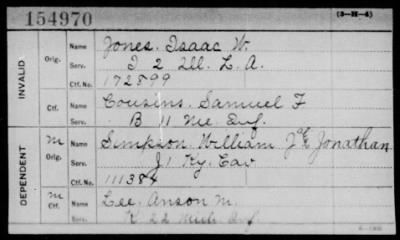 154970
(3-H-4)
INVALID
Orig. Name Jones, Isaac W.
Serv. I 2 Ill. L. A.
Ctf. No. 172899
Ctf. Name Cousins, Samuel F
Serv. B 11 Me Inf.
DEPENDENT
M Orig. Name Simpson William J of Jonathan
Serv. J1 Ky. Cav
Ctf. No. 111384
M Ctf. Name Lee, Anson M.
Serv. K 22 Mich Inf.